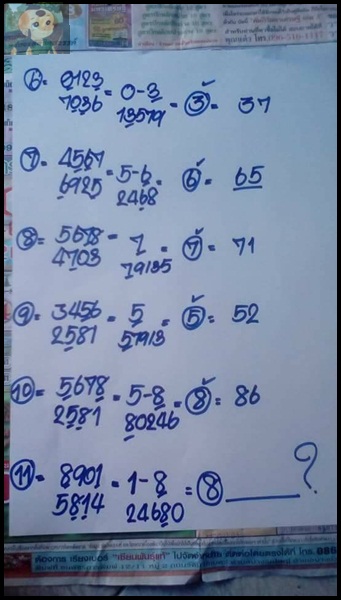 ⑥= 0123 = 0-3 = ③ = 37
7036 13579
⑦= 4567 = 5-6 = ⑥ = 65
6925 2468
⑧= 5678 = 7 = ⑦ = 71
4703 79135
⑨= 3456 = 5 = ⑤ = 52
2581 57913
⑩= 5678 = 5-8 = ⑧ = 86
2581 80246
⑪= 8901 = 1-8 = ⑧ ______ ?
5814 24680